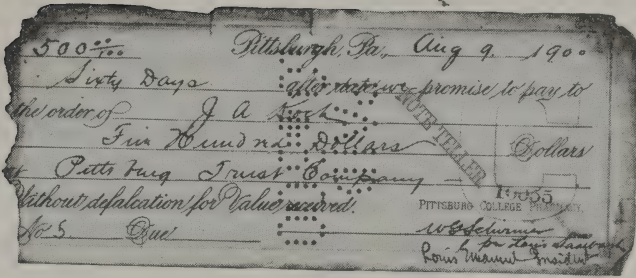 500 00/100 Pittsburgh, Pa., Aug 9. 1900
Sixty Days after date we promise to pay to
the order of J A Koch
Five Hundred Dollars Dollars
at Pittsburg Trust Company
Without defalcation for Value received.
NOTE TELLER
PITTSBURG COLLEGE PHARMACY,
No 5. Due
Louis Emanuel President